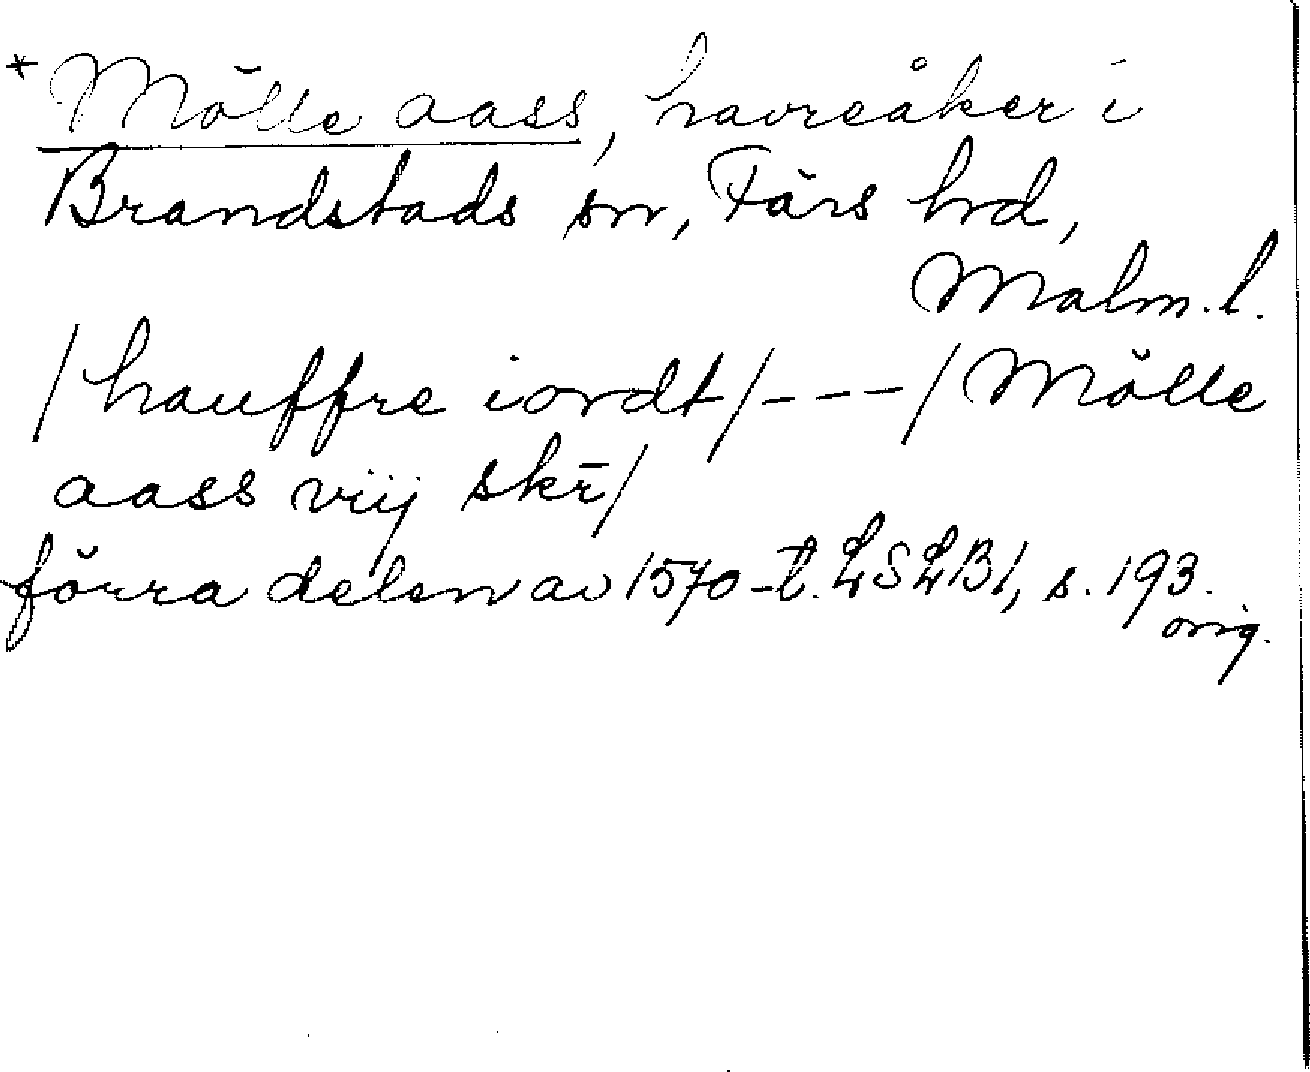 * Mölle aass, havreåker i
Brandstads sn, Färs hrd,
Malm. l.
/ hauffre iordt / - - - / Mölle
aass vij skr̄ /
förra delen av 1570-t. LSLB1, s. 193.
orig.